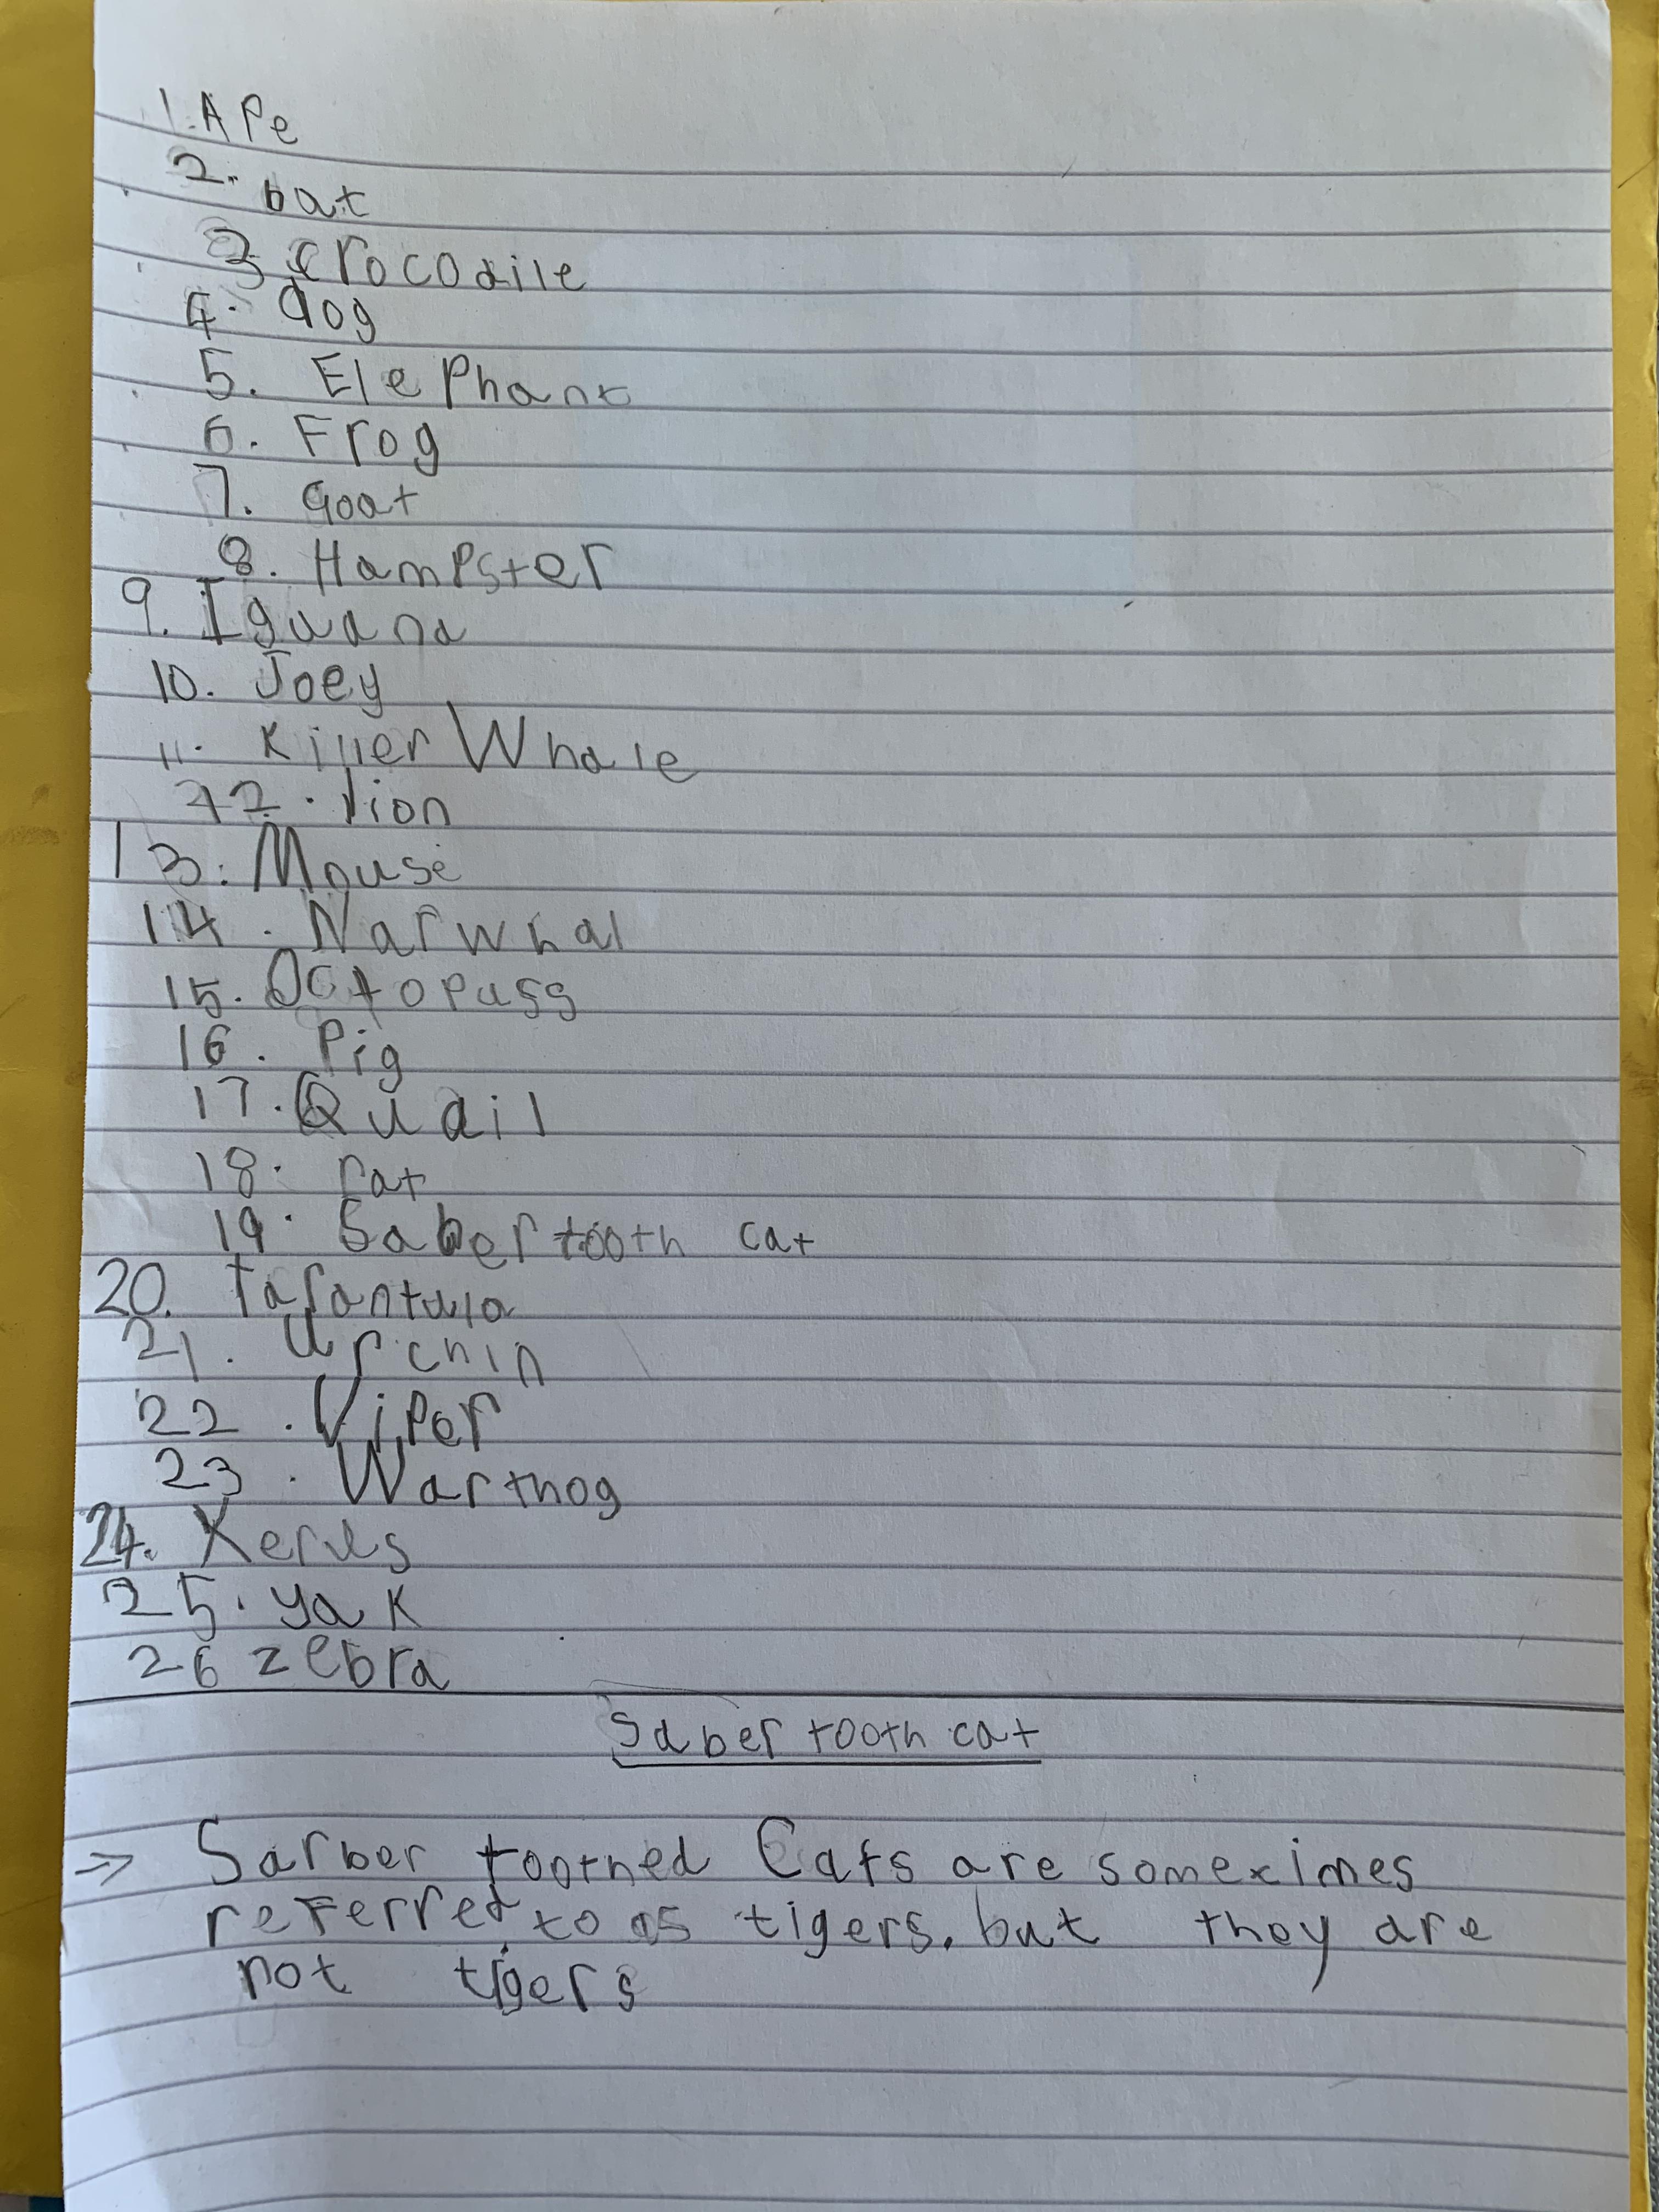 1. APe
2. bat
3 crocodile
4. dog
5. ElePhant
6. Frog
7. Goat
8. HamPster
9. Iguana
10. Joey
11. Killer Whale
12. lion
13. Mouse
14. Narwhal
15. OctoPuss
16. Pig
17. Quail
18. rat
19. Saber tooth cat
20. tarantula
21. Urchin
22. ViPer
23. Warthog
24. Xerus
25. yak
26 zebra
Saber tooth cat
→ Sarber toothed Cats are sometimes
referred to as tigers. but they are
not tigers